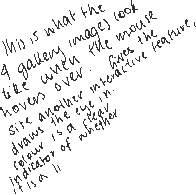 This is what the
4 gallery images look
like when the mouse
hovers over. Gives the
site another interactive feature,
draws the eye in.
colour is a clear
indicator of whether
it is a